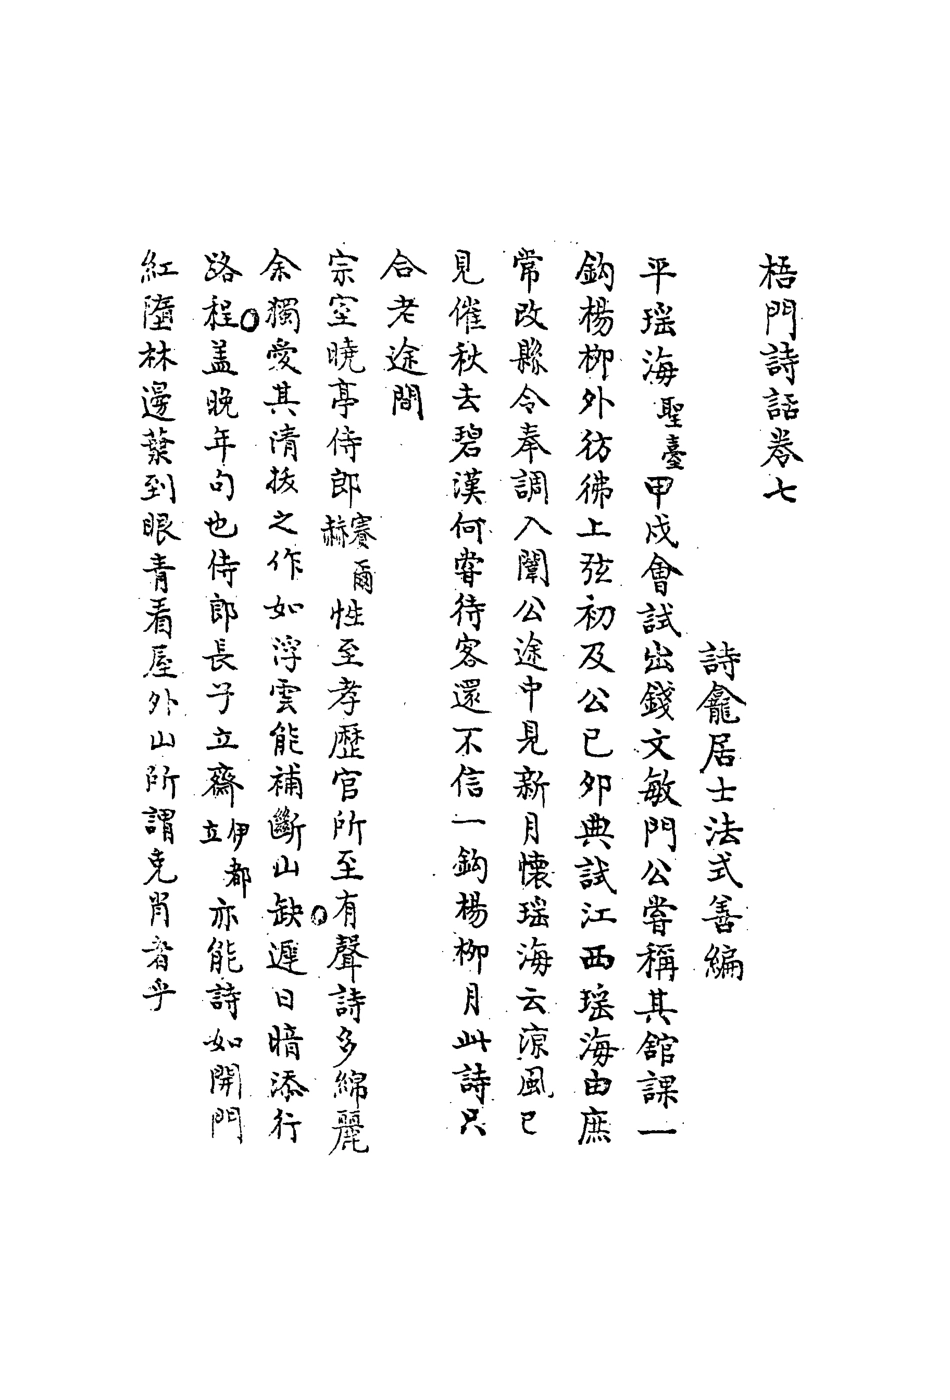 梧門詩話卷七
詩龕居士法式善編
平瑶海聖臺甲戌會試出錢文敏門公嘗稱其舘課一
鈎楊柳外彷彿上弦初及公己卯典試江西瑶海由庶
常改縣令奉調入闈公途中見新月懷瑶海云凉風已
見催秋去碧漢何甞待客還不信一鈎楊柳月此詩只
合老途間
宗室曉亭侍郎賽爾赫性至孝歷官所至有聲詩多綿麗
余獨愛其清拔之作如浮雲能補斷山缺遲日暗添行
路程盖晚年句也侍郎長子立齋伊都立亦能詩如開門
紅墮林邊葉到眼青看屋外山所謂克肖者乎